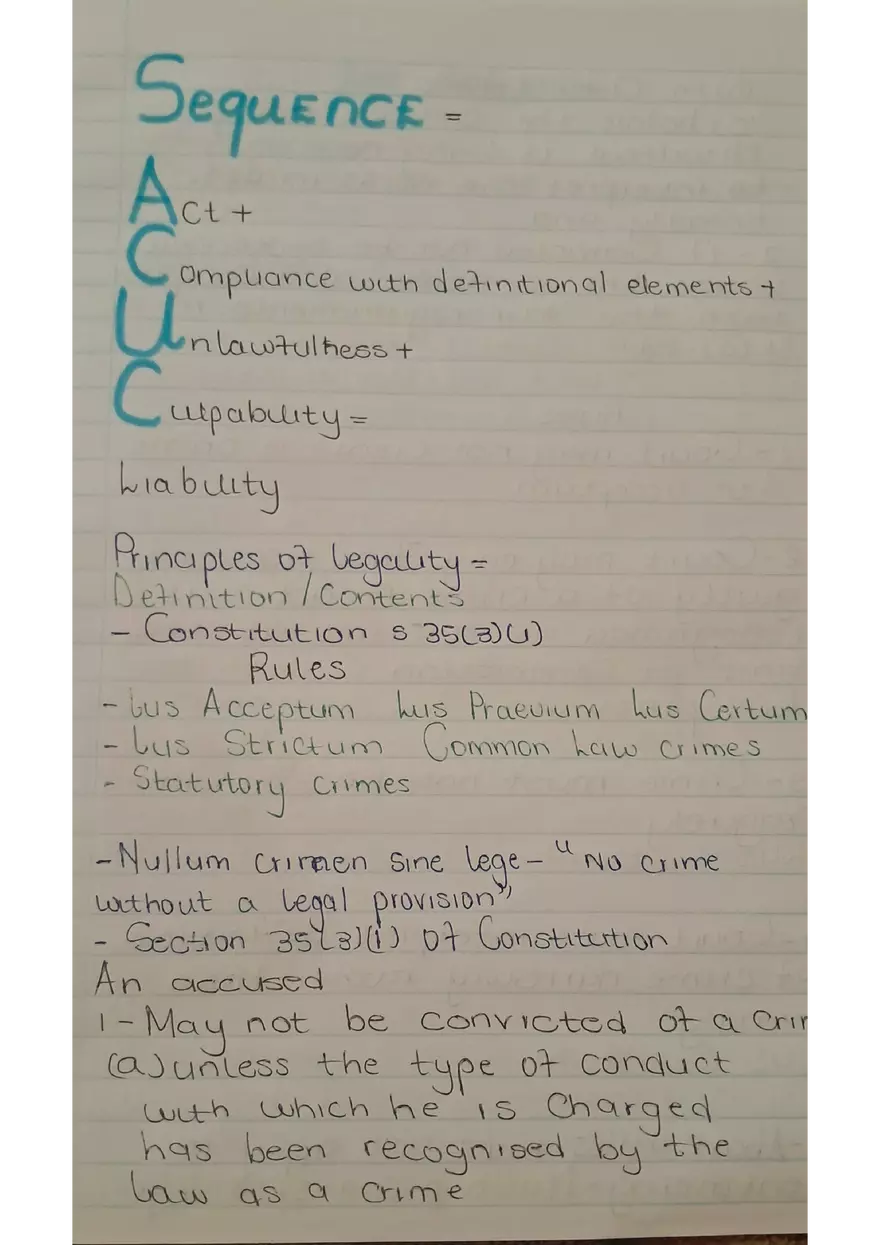 SEQUENCE =
Act +
Compliance with definitional elements +
Unlawfulness +
Culpability =
Liability
Principles of Legality =
Definition / Contents
- Constitution s 35(3)(l)
Rules
- Ius Acceptum Ius Praevium Ius Certum
- Ius Strictum Common Law crimes
- Statutory crimes
- Nullum crimen sine lege - "No crime
without a legal provision"
- Section 35(3)(l) of Constitution
An accused
1 - May not be convicted of a crim
(a) unless the type of conduct
with which he is charged
has been recognised by the
Law as a crime